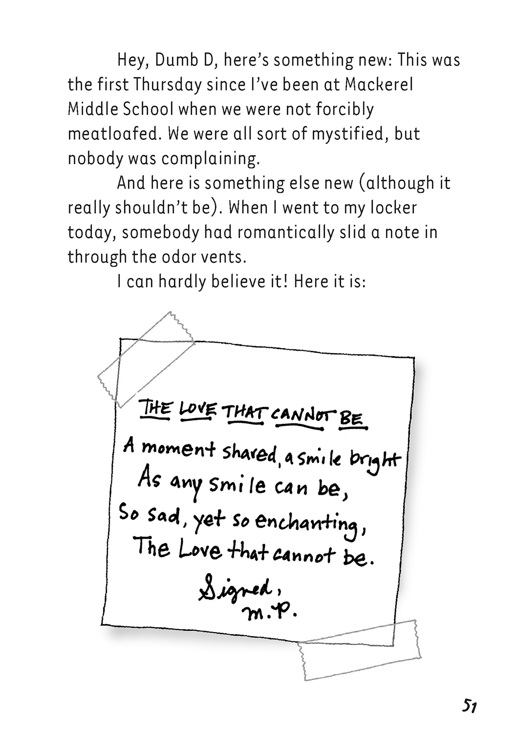 Hey, Dumb D, here’s something new: This was
the first Thursday since I’ve been at Mackerel
Middle School when we were not forcibly
meatloafed. We were all sort of mystified, but
nobody was complaining.
And here is something else new (although it
really shouldn’t be). When I went to my locker
today, somebody had romantically slid a note in
through the odor vents.
I can hardly believe it! Here it is:
THE LOVE THAT CANNOT BE
A moment shared, a smile bright
As any smile can be,
So sad, yet so enchanting,
The Love that cannot be.
Signed,
M.P.
51